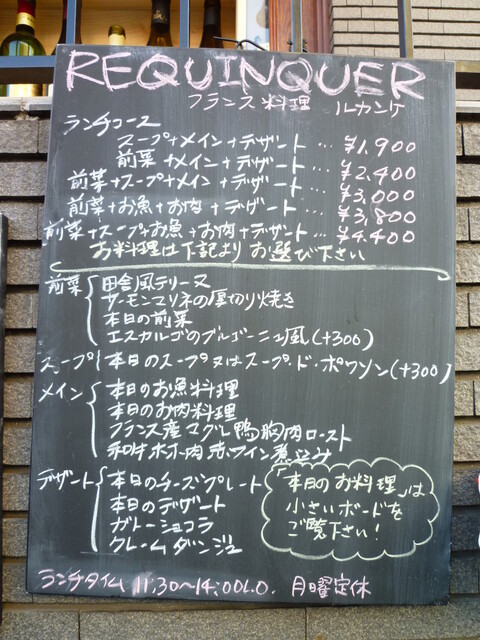 REQUINQUER
フランス料理 ルカンケ
ランチコース
スープ+メイン+デザート … ¥1,900
前菜+メイン+デザート … ¥2,400
前菜+スープ+メイン+デザート … ¥3,000
前菜+お魚+お肉+デザート … ¥3,800
前菜+スープ+お魚+お肉+デザート … ¥4,400
お料理は下記よりお選び下さい
前菜
田舎風テリーヌ
サーモンマリネの厚切り焼き
本日の前菜
エスカルゴのブルゴーニュ風(+300)
スープ
本日のスープ又はスープ・ド・ポワソン(+300)
メイン
本日のお魚料理
本日のお肉料理
フランス産マグレ鴨胸肉ロースト
和牛ホホ肉赤ワイン煮込み
デザート
本日のチーズプレート
本日のデザート
ガトーショコラ
クレームダンジュ
「本日のお料理」は
小さいボードを
ご覧下さい!
ランチタイム 11:30~14:00L.O. 月曜定休